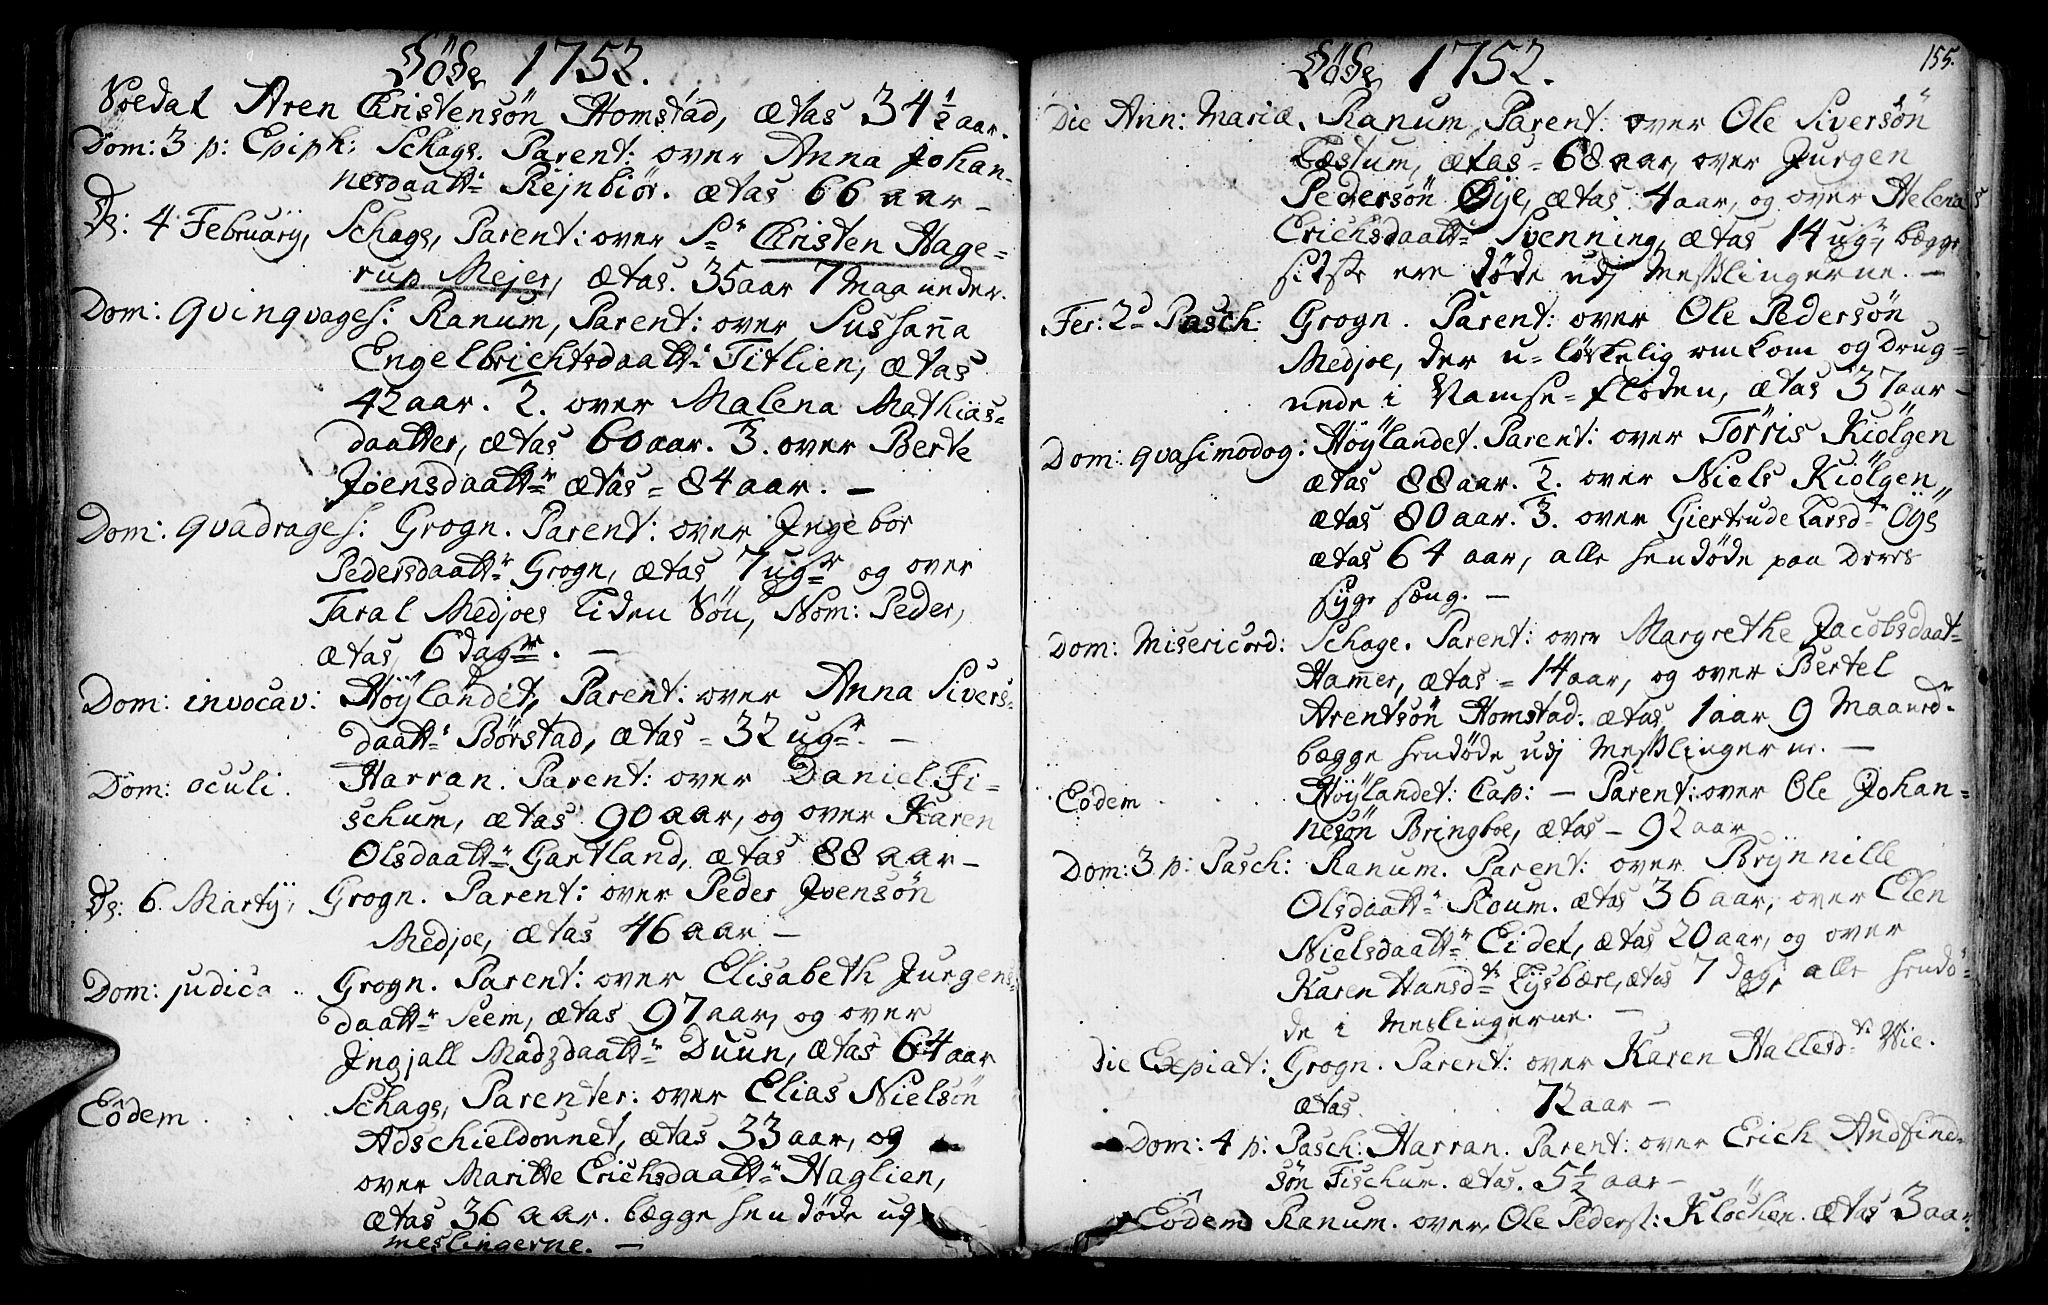 Döde 1752.
Soldat Aren Christensön Homstad, ætas 34 1/2 aar.
Dom: 3 p: Epiph: Schags. Parent: over Anna Johan-
nesdaattr Rejnbiör. ætas 66 aar -
D: 4 Februarij, Schags, Parent: over Sr Christen Hage-
rup Mejer, ætas. 35 aar 7 Maaneder.
Dom: qvinqvages: Ranum, Parent: over Sussanna
Engelbrichtsdaattr Titlien, ætas
42 aar. 2. over Malena Mathias-
daatter, ætas 60 aar. 3. over Berte
Joensdaattr ætas = 84 aar. -
Dom: qvadrages: Grogn. Parent: over Ingebor
Pedersdaattr Grogn, ætas, 7 ugr og over
Taral Medjoes liden Sön, Nom: Peder,
ætas, 6 dagr. -
Dom: invocav: Höylandet, Parent: over Anna Sivers-
daattr Börstad, ætas = 32 ugr. -
Dom: oculi. Harran. Parent: over Daniel Fi-
schum, ætas 90 aar, og over Karen
Olsdaattr Gartland, ætas 88 aar -
D: 6. Martij, Grogn. Parent: over Peder Joensön
Medjoe, ætas 46 aar -
Dom: judica. Grogn. Parent: over Elisabeth Jurgens-
daattr Seem, ætas 97 aar, og over
Ingjall Madzdaattr Duun, ætas 64 aar
Eodem . . . Schags, Parenter: over Elias Nielsön
Adschieldonnet, ætas 33 aar, og
over Maritte Erichsdaattr Haglien,
ætas 36 aar. begge hendöde udj
meslingerne. -
155.
Döde 1752.
Die Ann: Mariæ, Ranum, Parent: over Ole Siversön
Læstum, ætas = 68 aar, over Jurgen
Pedersön Øije, ætas 4 aar, og over Helena
Erichsdaattr Svenning, ætas 14 ugr, begge
sidste ere döde udj Messlingerne. -
Fer: 2d Pasch: Grogn. Parent: over Ole Pedersön
Medjoe, der u-løckelig omkom og drug-
nede i Namse-floden, ætas 37 aar -
Dom: qvasimodog: Höylandet. Parent: over Törris Kiölgen
ætas 88 aar. 2. over Niels Kiölgen
ætas 80 aar. 3. over Giertrude Larsdtr Öye
ætas 64 aar, alle hendöde paa deres
syge seng. -
Dom: Misericord: Schage. Parent: over Margrethe Jacobsdaat-
Hamer, ætas = 14 aar, og over Bertel
Arentsön Homstad. ætas, 1 aar 9 Maandr.
begge hendöde udj Messlingerne. -
Eodem . . . Höylandet: Cap: - Parent: over Ole Johan-
nesön Bringboe, ætas - 92 aar
Dom: 3 p: Pasch: Ranum. Parent: over Brynnille
Olsdaattr Roum. ætas 36 aar, over Elen
Nielsdaattr Eidet, ætas 20 aar, og over
Karen Hansdtr Lysbære, ætas 7 dag, alle hendö-
de i Meslingerne. -
Die Expiat: Grogn. Parent: over Karen Hallesdtr Wie.
ætas. 72 aar -
Dom: 4 p: Pasch: Harran. Parent: over Erich Andfind-
sön Fischum. ætas. 5 1/2 aar -
Eodem Ranum. over Ole Peders: Klöchen. ætas 3 aar